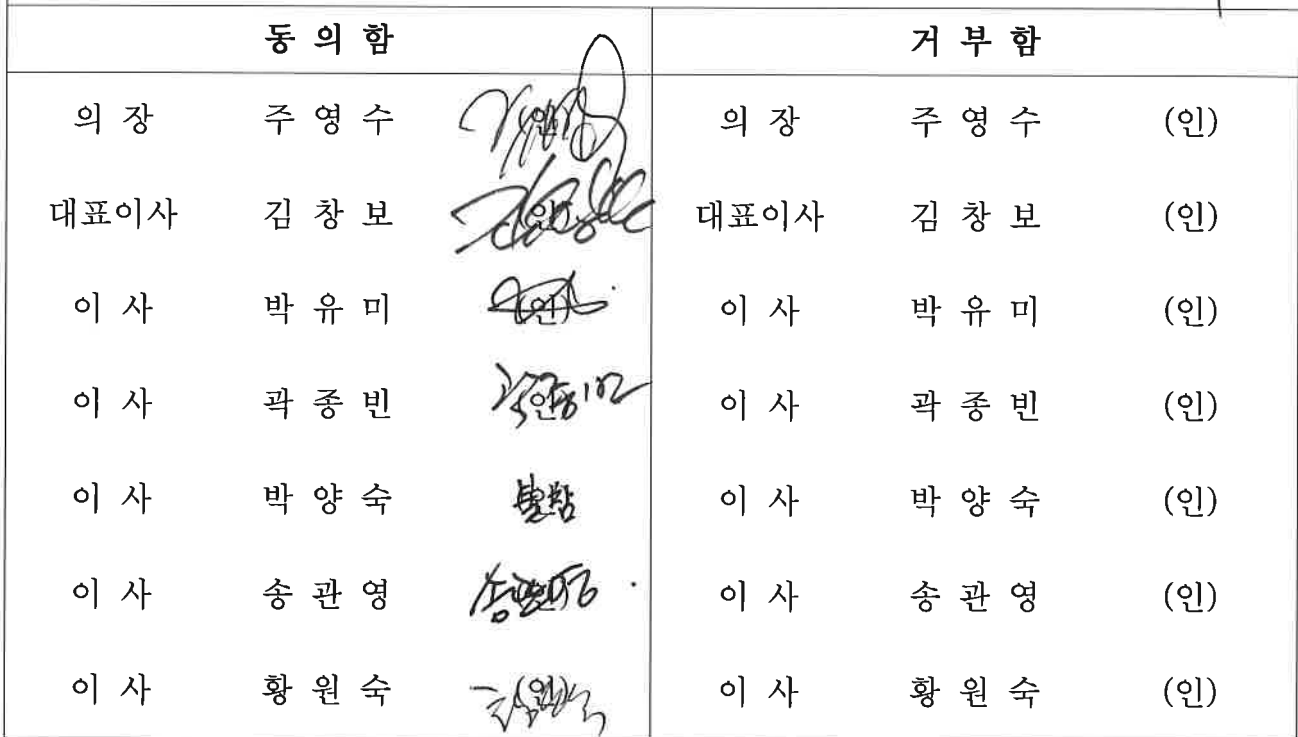 동 의 함 거 부 함
의 장 주 영 수 (인) 의 장 주 영 수 (인)
대표이사 김 창 보 (인) 대표이사 김 창 보 (인)
이 사 박 유 미 (인) 이 사 박 유 미 (인)
이 사 곽 종 빈 (인) 이 사 곽 종 빈 (인)
이 사 박 양 숙 불참 이 사 박 양 숙 (인)
이 사 송 관 영 이 사 송 관 영 (인)
이 사 황 원 숙 (인) 이 사 황 원 숙 (인)